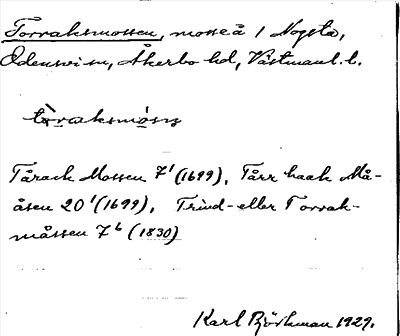 Torraksmossen, mosse å 1 Nygsta,
Odensvi sn, Åkerbo hd, Västmanl. l.
tòraksmósn
Tårack Mossen 7¹ (1699), Tårr haak Må-
åsen 20¹ (1699), Trind- eller Torrak-
måssen 7⁶ (1830)
Karl Björkman 1929.